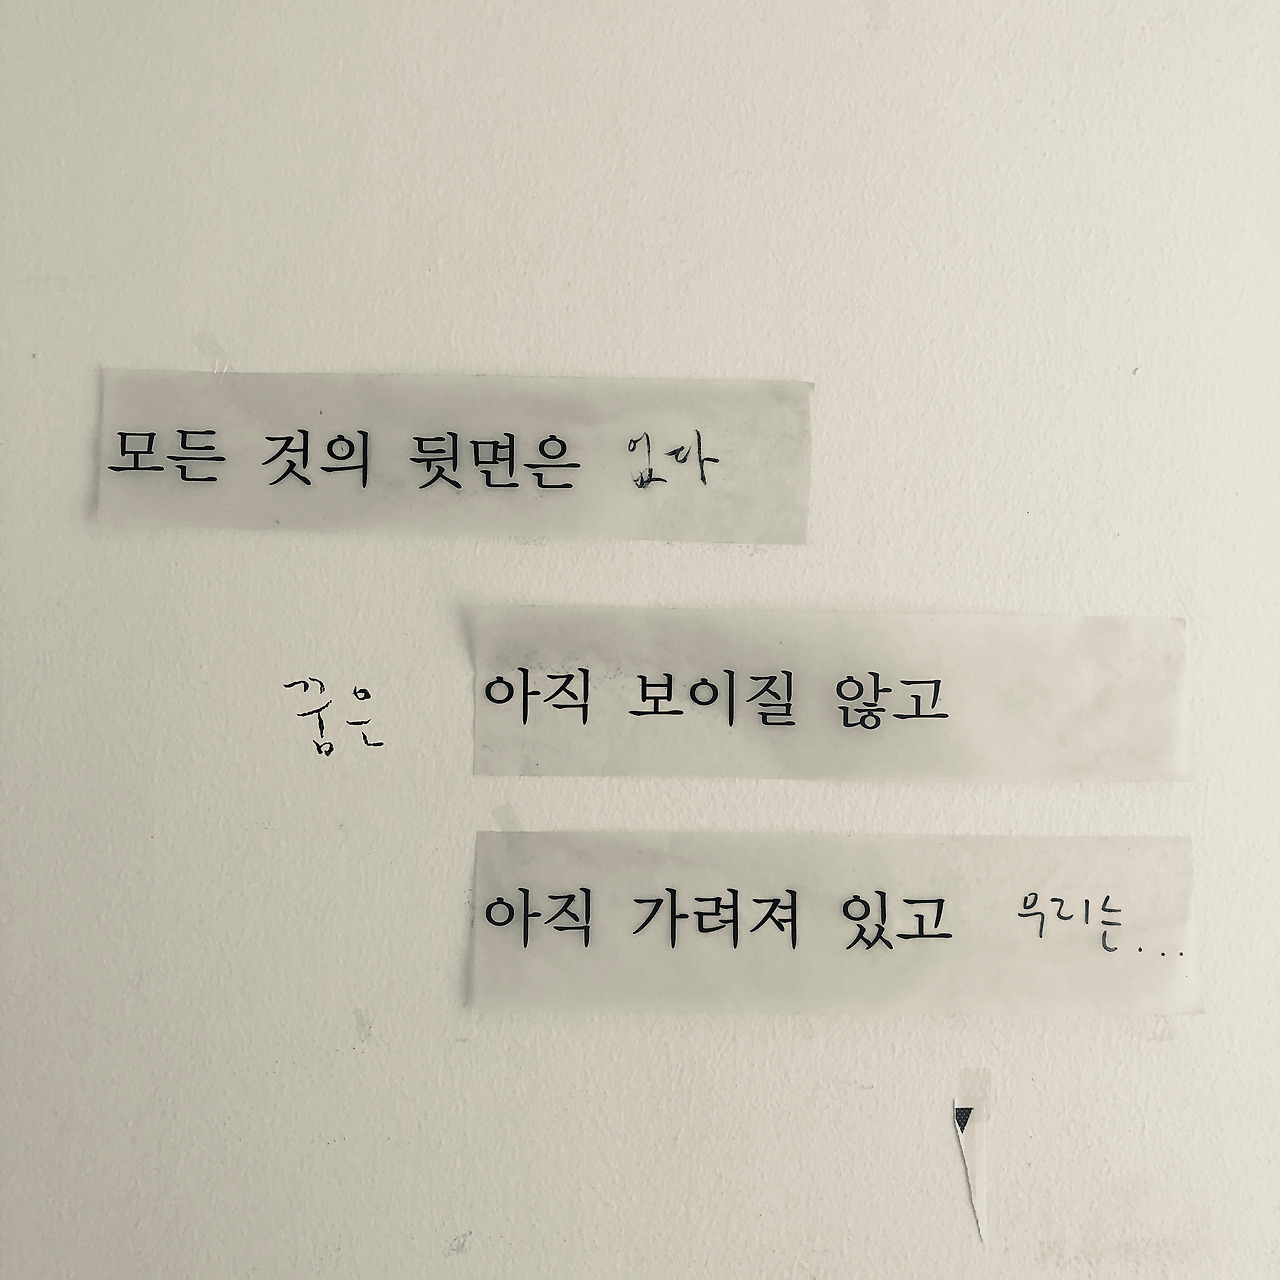 모든 것의 뒷면은 없다
꿈은 아직 보이질 않고
아직 가려져 있고 우리는...